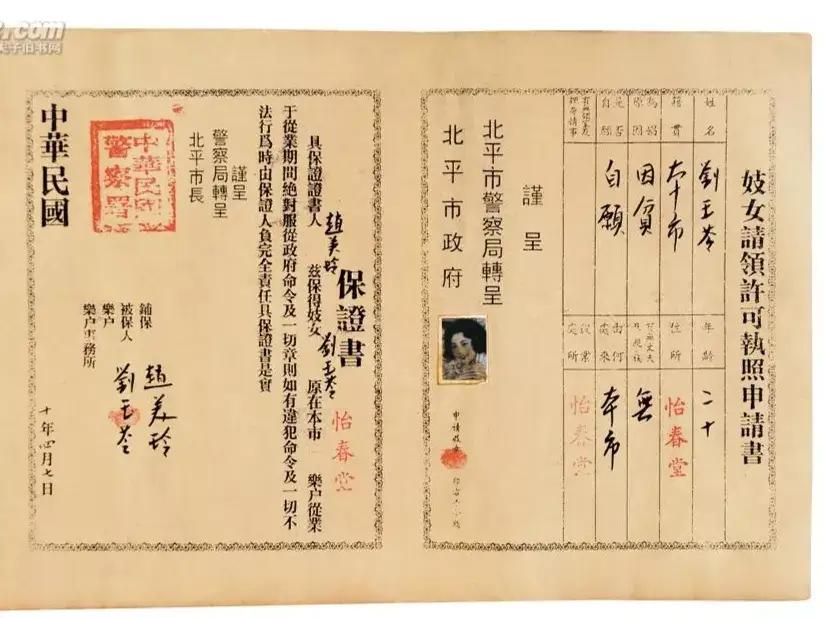 妓女請領許可執照申請書
姓名 劉玉苓 年齡 二十
籍貫 本市 住所 怡春堂
為娼原因 因貧 有無丈夫及親族 無
是否自願 自願 由何處來 本市
有無 從業處所 怡春堂
謹呈
北平市警察局轉呈
北平市政府
申請
保證書
具保證證書人 趙美玲 茲保得妓女 劉玉苓 原在本市 怡春堂 樂户從業
于從業期間絶對服從政府命令及一切章則如有違犯命令及一切不
法行爲時由保證人負完全責任具保證書是實
謹呈
警察局轉呈
北平市長
中華民國警察署
鋪保 趙美玲
被保人 劉玉苓
樂户
樂户事務所
中華民國
十年四月七日
.com
旧书网